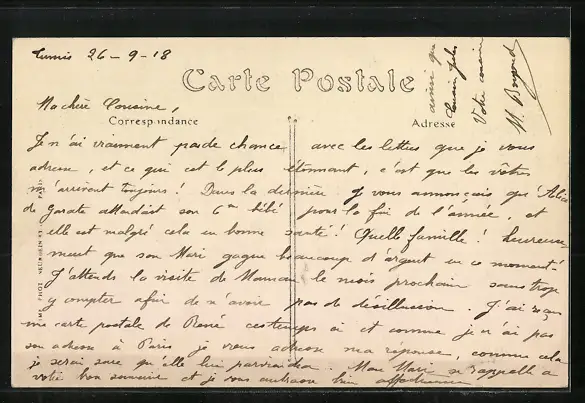 26-9-18
Carte Postale
Ma chère Cousine,
Correspondance
Adresse
Je n'ai vraiment pas de chance avec les lettres que je vous
adresse, et ce qui est le plus étonnant, c'est que les vôtres
m'arrivent toujours! Dans la dernière je vous annonçais qu'Alice
de Garate attendait son 6e bébé pour la fin de l'année, et
elle est malgré cela en bonne santé! Quelle famille! heureuse
ment que son Mari gagne beaucoup d'argent en ce moment!
J'attends la visite de Maman le mois prochain sans trop
y compter afin de n'avoir pas de désillusion. J'ai reçu
une carte postale de René ces temps ci et comme je n'ai pas
son adresse à Paris je vous adresse ma réponse, comme cela
je serai sure qu'elle lui parviendra. Mon Mari se rappelle à
votre bon souvenir et je vous embrasse bien affectueusement
ainsi que
Cousin
Votre cousine
M.
IMP. PHOT. NEURDEIN ET CIE PARIS